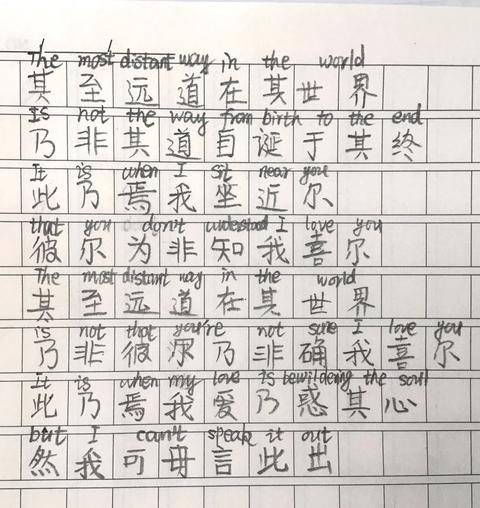 The most distant way in the world
其至远道在其世界
Is not the way from birth to the end
乃非其道自诞于其终
It is when I sit near you
此乃焉我坐近尔
that you don't understand I love you
彼尔为非知我喜尔
The most distant way in the world
其至远道在其世界
is not that you're not sure I love you
乃非彼尔乃非确我喜尔
It is when my love is bewildering the soul
此乃焉我爱乃惑其心
but I can't speak it out
然我可毋言此出